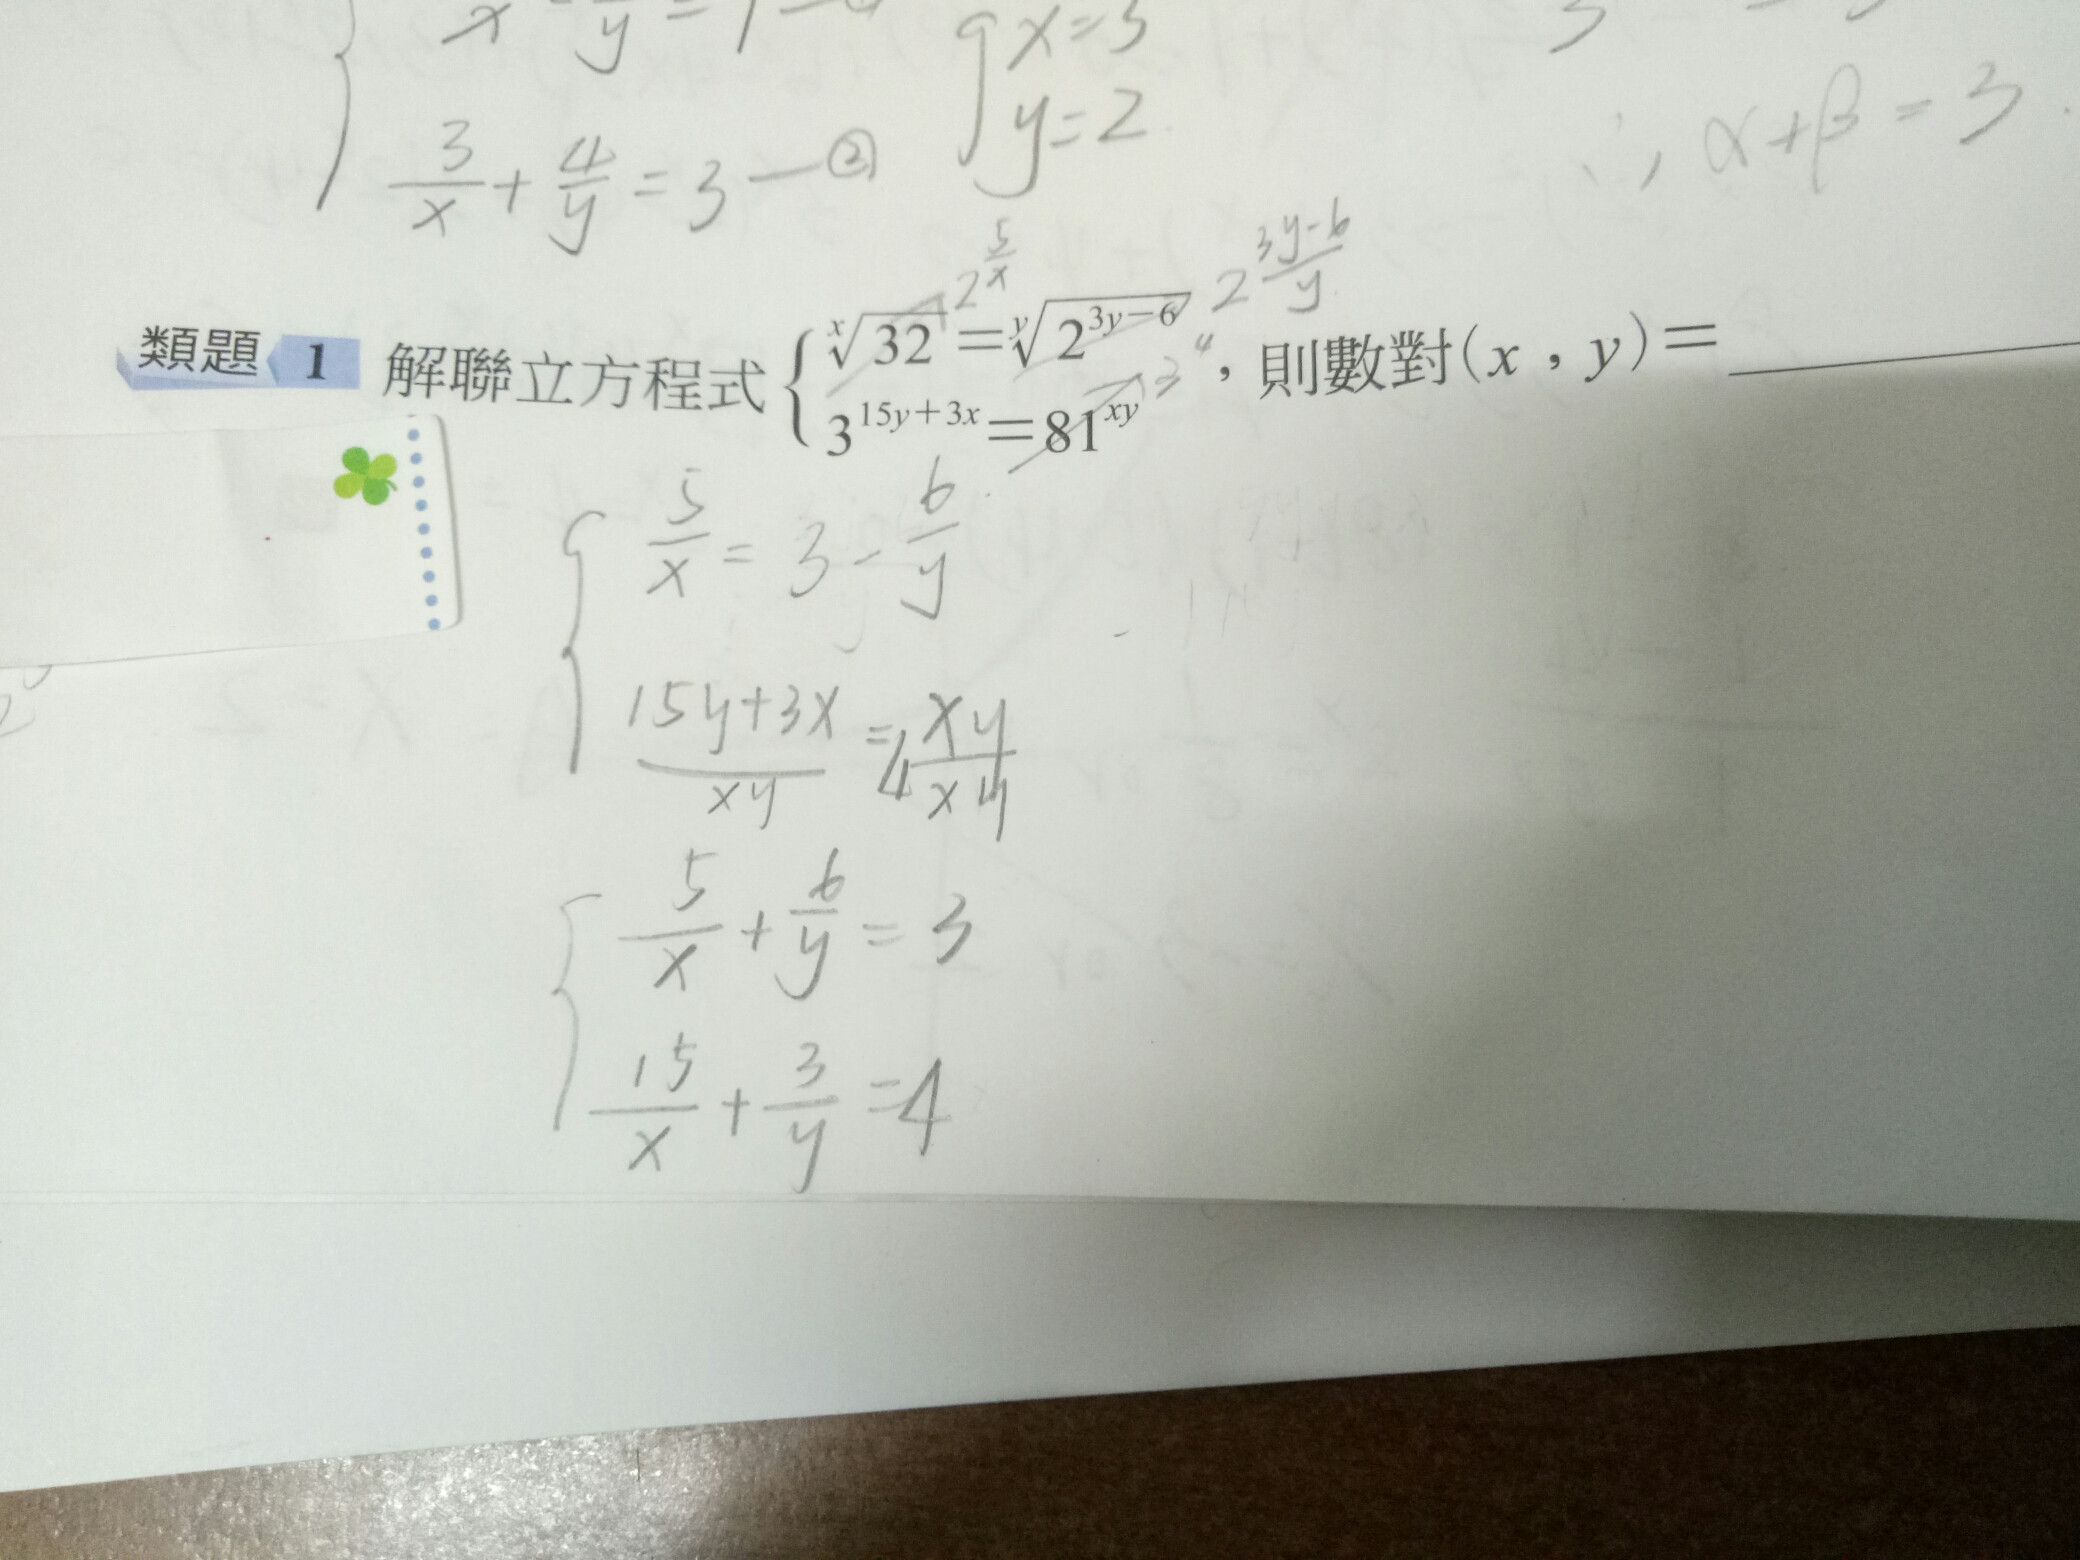 x y
x=3
3/x + 4/y = 3 —②
y=2
∴, α+β=3
2^(5/x) 2^((3y-6)/y)
類題 1 解聯立方程式 { ˣ√32 = ʸ√2^(3y-6) , 則數對(x , y)=
3^(15y+3x) = 81^(xy) 3⁴
5/x = 3 - 6/y
(15y+3x)/xy = 4 xy/xy
5/x + 6/y = 3
15/x + 3/y = 4